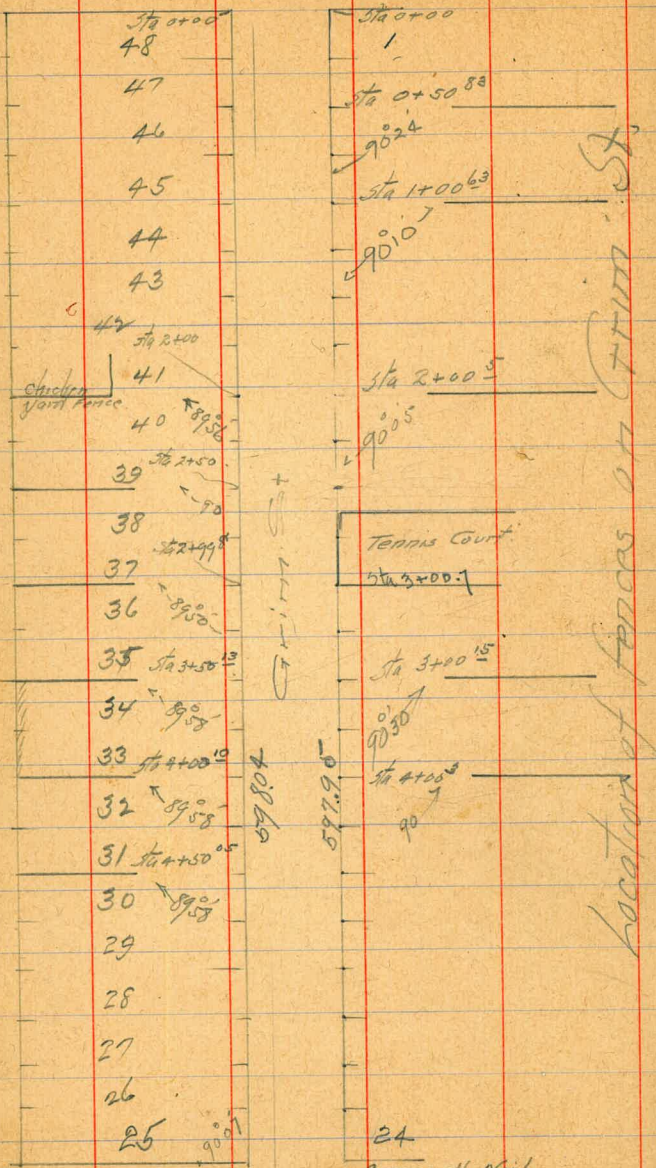 Sta 0+00
48
47
46
45
44
43
42
Sta 2+00
41
Chicken
Yard Fence
40
89°56'
Sta 2+50
39
90
38
Sta 2+99⁸
37
36
89°50'
35 Sta 3+50¹³
34
89°58'
33 Sta 4+00¹⁰
32
89°58'
31 Sta 4+50⁰⁵
30
89°58'
29
28
27
26
25
90°07'
Grim St
598.04
597.98
Sta 0+00
1
Sta 0+50⁸³
90°24
Sta 1+00⁶³
90°10'
Sta 2+00⁵
90°05
Tennis Court
Sta 3+00.7
Sta 3+00¹⁵
90°30'
Sta 4+00³
90
24
Location of fences on Grim St.